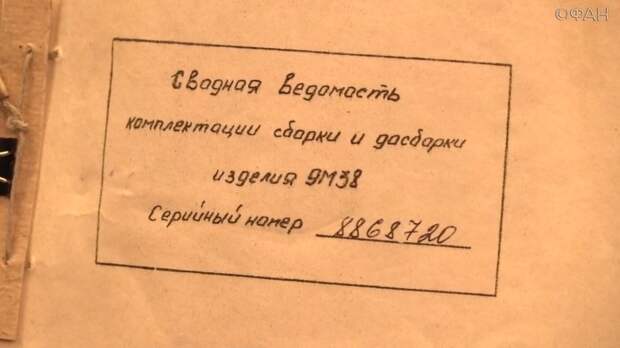 ©ФАН
Сводная ведомасть
комплектации сборки и дасборки
изделия 9М38
Серийный номер 8868720